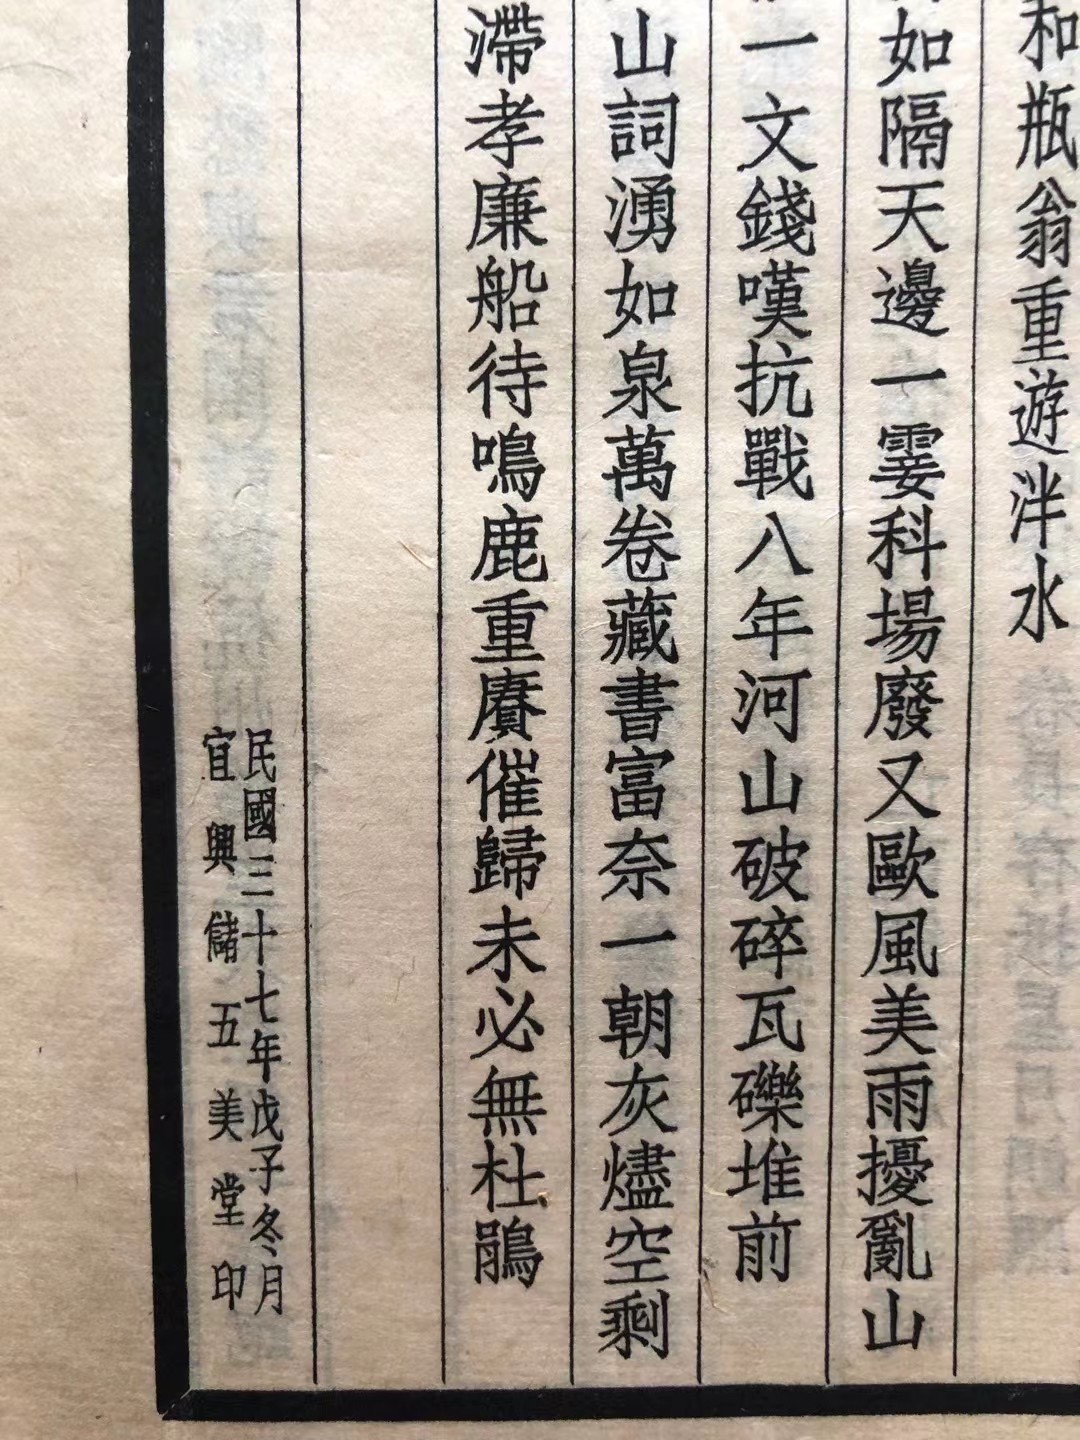 和瓶翁重遊泮水
如隔天邊一霎科場廢又歐風美雨擾亂山
一文錢嘆抗戰八年河山破碎瓦礫堆前
山詞湧如泉萬卷藏書富奈一朝灰燼空剩
滯孝廉船待鳴鹿重賡催歸未必無杜鵑
民國三十七年戊子冬月
宜興儲五美堂印